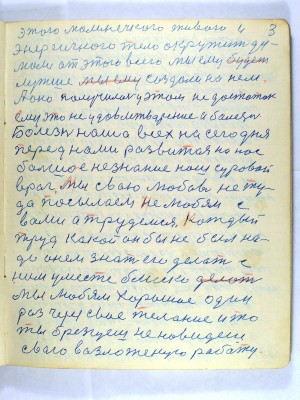 3
этого маленького живого и
энергичного тело окружит ду-
мали от этого всего мы ему будет
лутше мы ему создали на нем.
Аоно получилос у этом не достаток
ему это не удовлитварение а балезн
Болезн наша всех на сегодня
перед нами развитая на нас
большое незнание наш суровый
враг, Мы сваю любовь не ту-
да посылаем Не любям с
вами а трудемся, Каждый
труд какой он бы не был на-
до онем знат его делат с
ним уместе близко делат
мы любям Харошое один
раз через свае желание и то
ты брезгуем не новидеш
сваго возложеную работу.